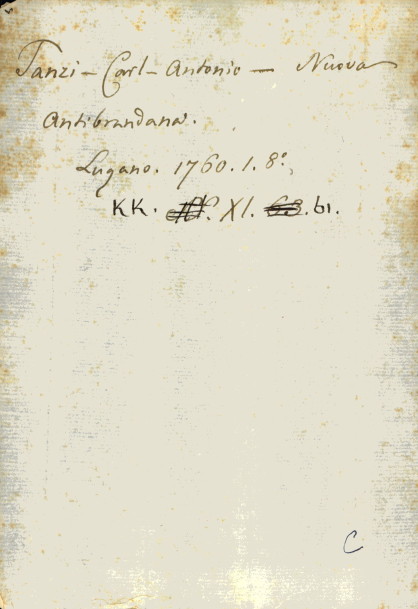 Tanzi - Carl - Antonio - Nuova
Antibrandana.
Lugano. 1760. 1. 8°.
KK. XI. 61.
C